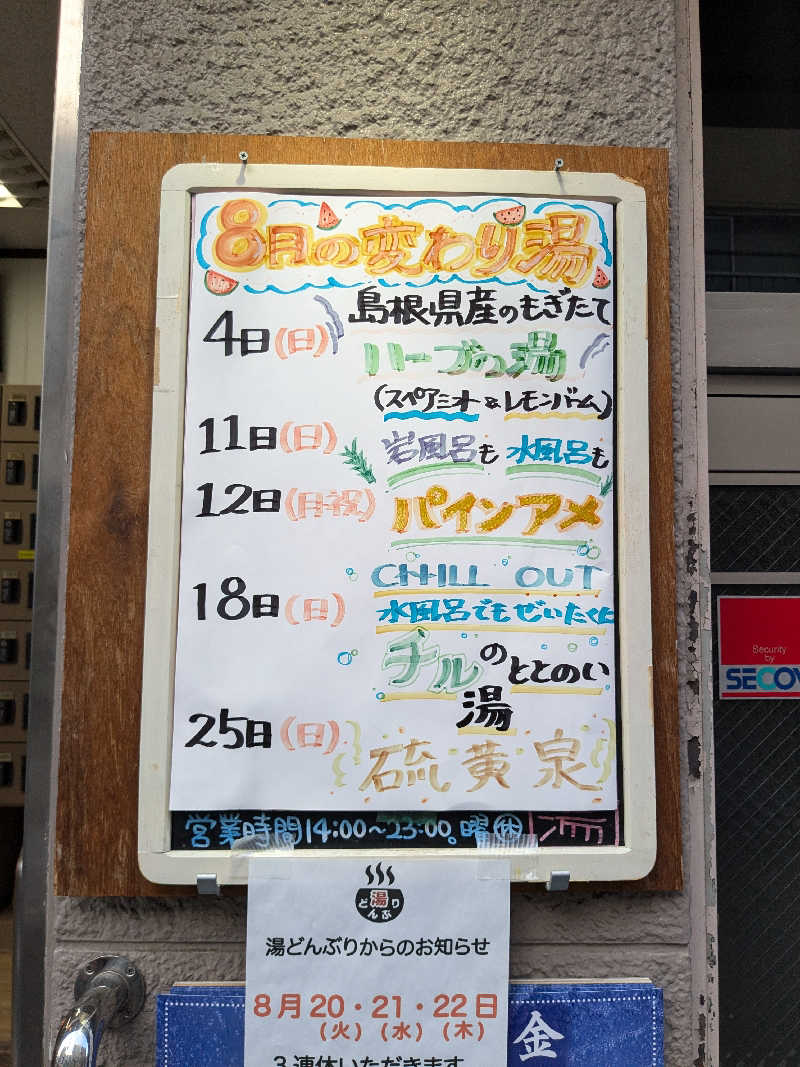 8月の変わり湯
4日(日)
島根県産のもぎたて
ハーブの湯
(スペアミント&レモンバーム)
11日(日)
岩風呂も水風呂も
12日(月祝)
パインアメ
CHILL OUT
18日(日)
水風呂でもぜいたくに
チルのととのい
湯
25日(日)
硫黄泉
営業時間14:00~23:00。曜
湯どんぶり
湯どんぶりからのお知らせ
8月20・21・22日
(火)(水)(木)
3連休いただきます
金
Security
by
SECO